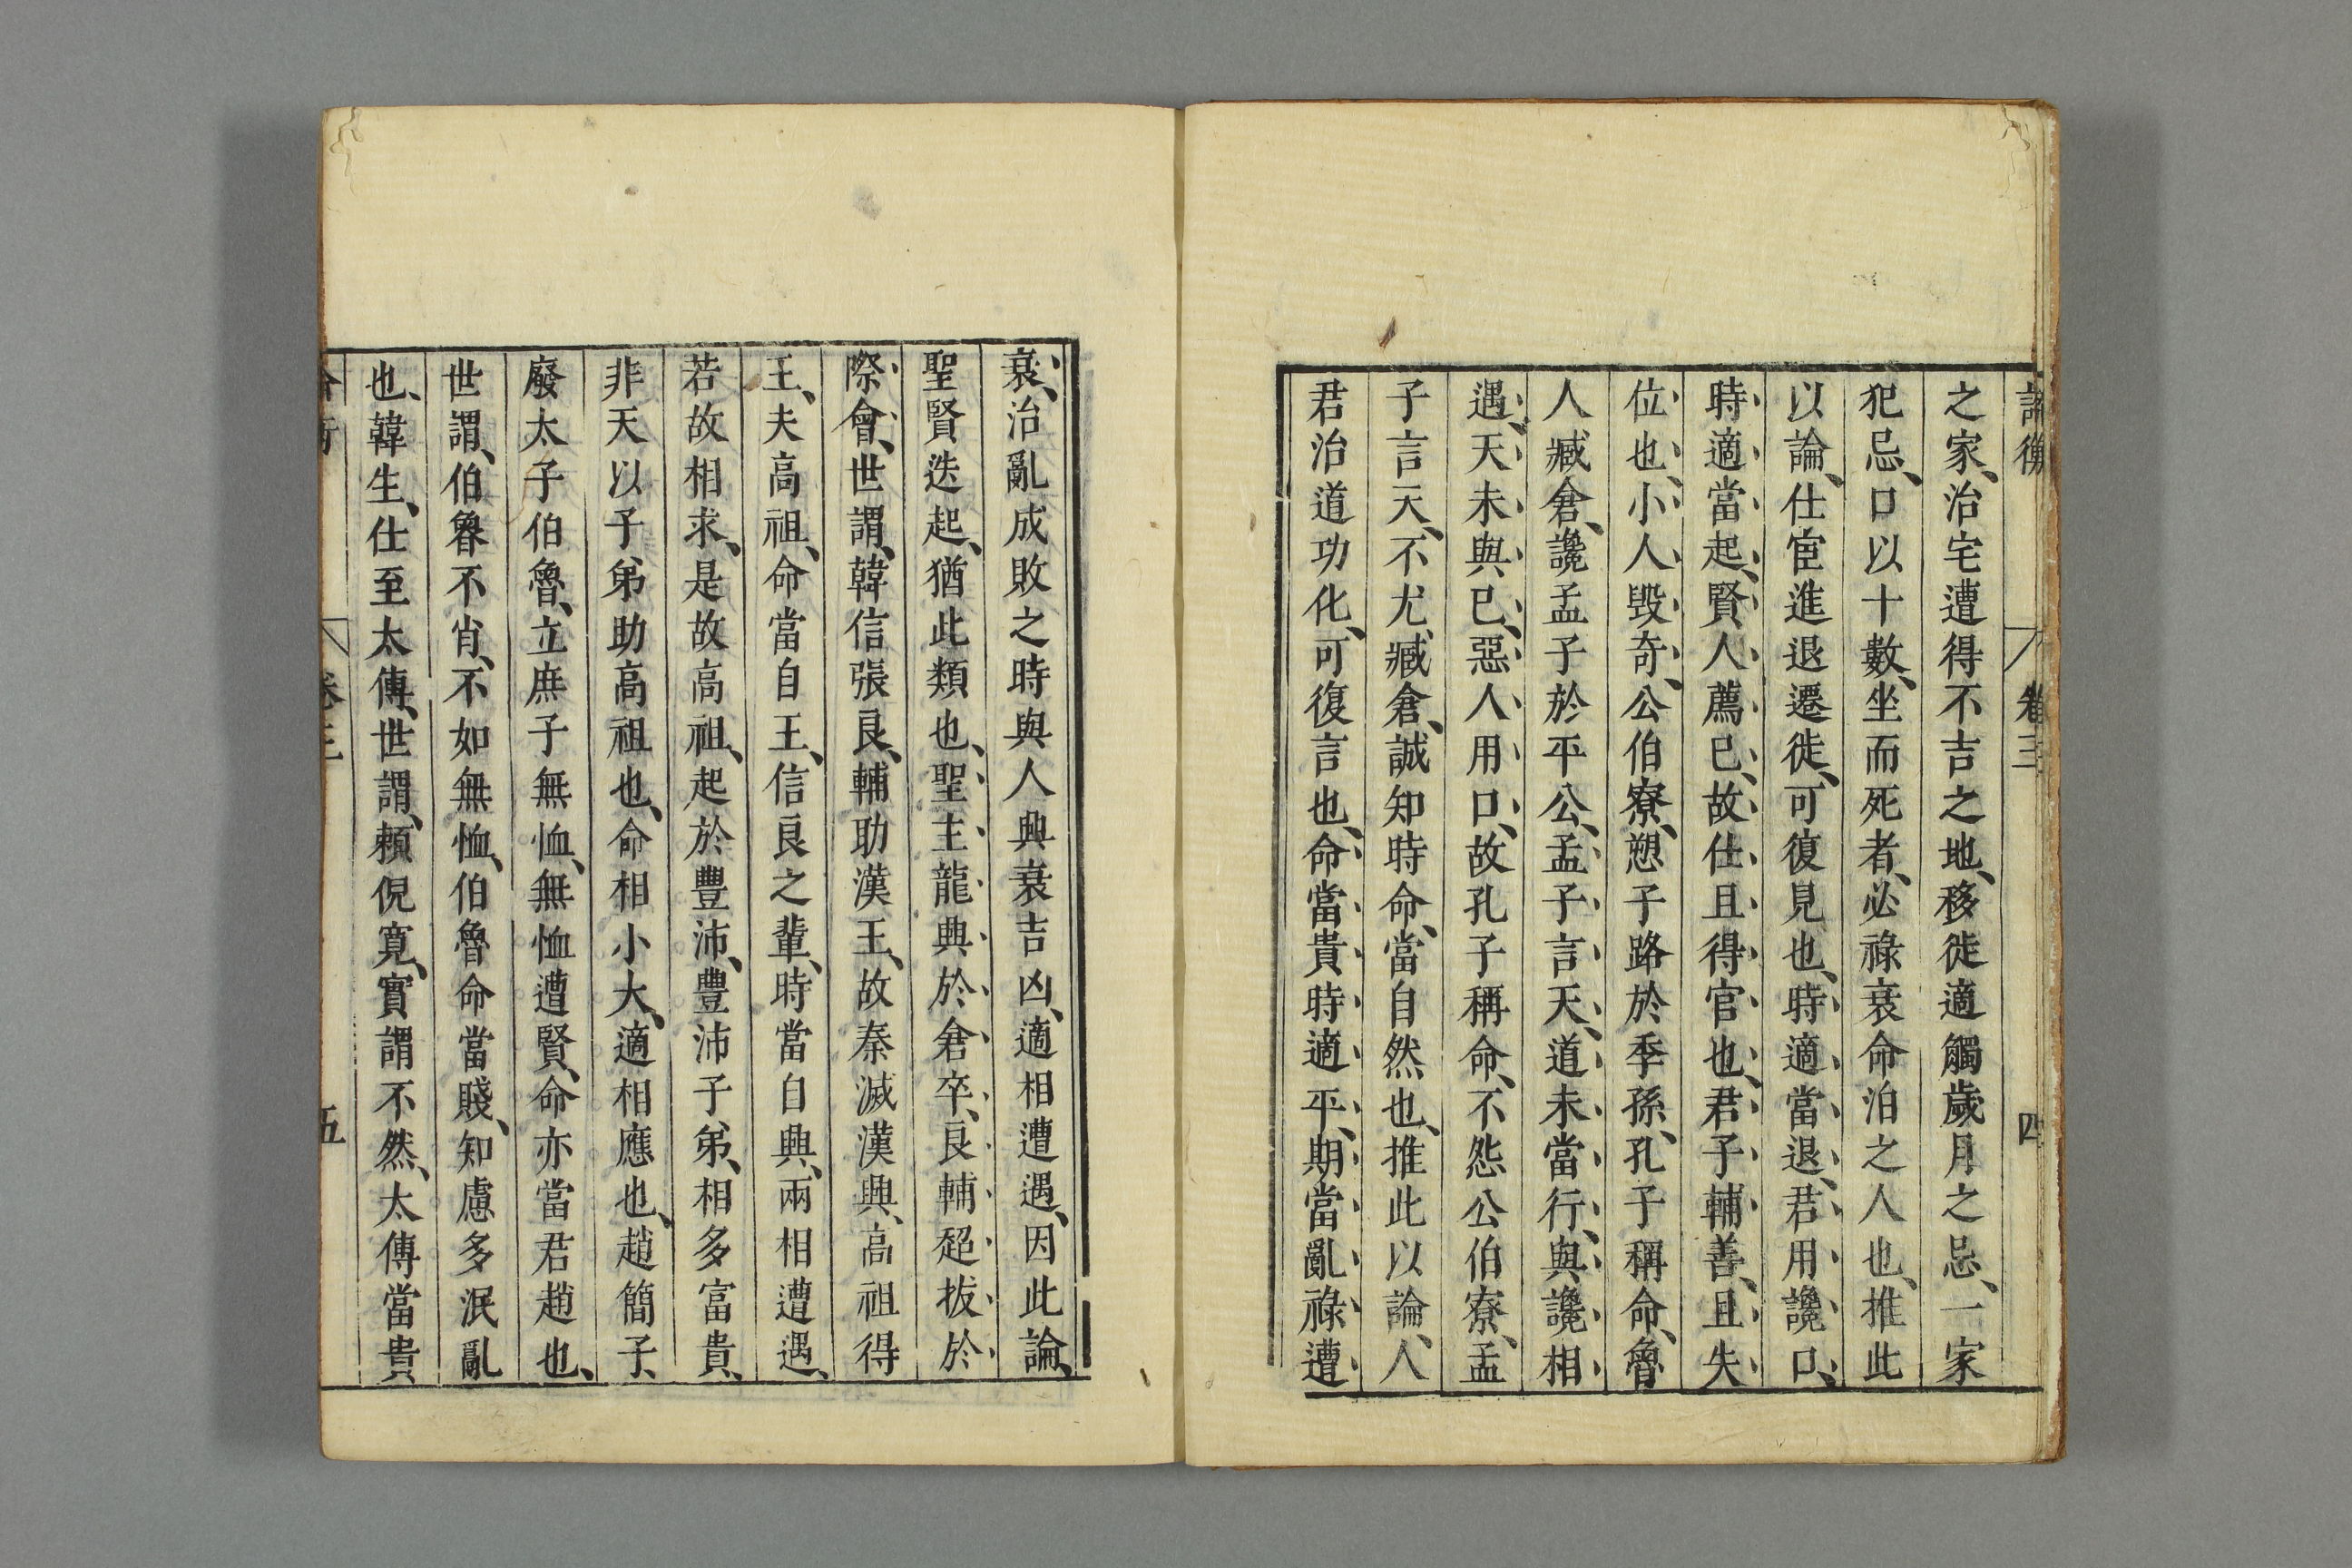 論衡 卷三 四
之家、治宅遭得不吉之地、移徙適觸歲月之忌、一家
犯忌、口以十數、坐而死者、必祿衰命泊之人也、推此
以論、仕宦進退遷徙、可復見也、時適當退、君用讒口、
時適當起、賢人薦已、故仕且得官也、君子輔善、且失
位也、小人毁奇、公伯寮、愬子路於季孫、孔子稱命、魯
人臧倉、讒孟子於平公、孟子言天、道未當行、與讒相
遇、天未與已、惡人用口、故孔子稱命、不怨公伯寮、孟
子言天、不尤臧倉、誠知時命、當自然也、推此以論、人
君治道功化、可復言也、命當貴時適平、期當亂祿遭
衰、治亂成敗之時與人興衰吉凶、適相遭遇、因此論、
聖賢迭起、猶此類也、聖主龍興於倉卒、良輔超拔於
際會、世謂、韓信張良、輔助漢王、故秦滅漢興、高祖得
王、夫高祖、命當自王、信良之輩、時當自興、兩相遭遇、
若故相求、是故高祖、起於豐沛、豐沛子弟、相多富貴、
非天以子弟助高祖也、命相小大、適相應也、趙簡子、
廢太子伯魯、立庶子無恤、無恤遭賢、命亦當君趙也、
世謂、伯魯不肖、不如無恤、伯魯命當賤、知慮多泯亂
也、韓生、仕至太傅、世謂、賴倪寬、實謂不然、太傅當貴
卷三 五